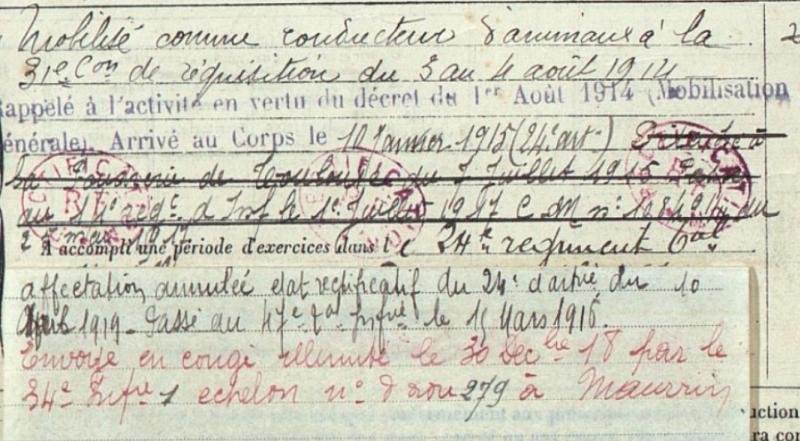 Mobilisé comme conducteur d'animaux à la
31e Con de réquisition du 3 au 4 août 1914
Rappelé à l'activité en vertu du décret du 1er Août 1914 (Mobilisation
générale). Arrivé au Corps le 12 Janvier 1915 (24e art.) à
la Poudrerie de Toulouse du 7 Juillet 1915
au 14e régt d'Inf le 1er Juillet 1917 C M n° du
2 mai 1917
A accompli une période d'exercices dans le 24e régiment
affectation annulée état rectificatif du 24e d'artie du 10
Avril 1919 - Passé au 47e Infrie le 15 Mars 1916.
Envoyé en congé illimité le 30 Dec bre 18 par le
34e Infie 1 echelon n° d'ordre 279 à Maurrin
uction
ra con